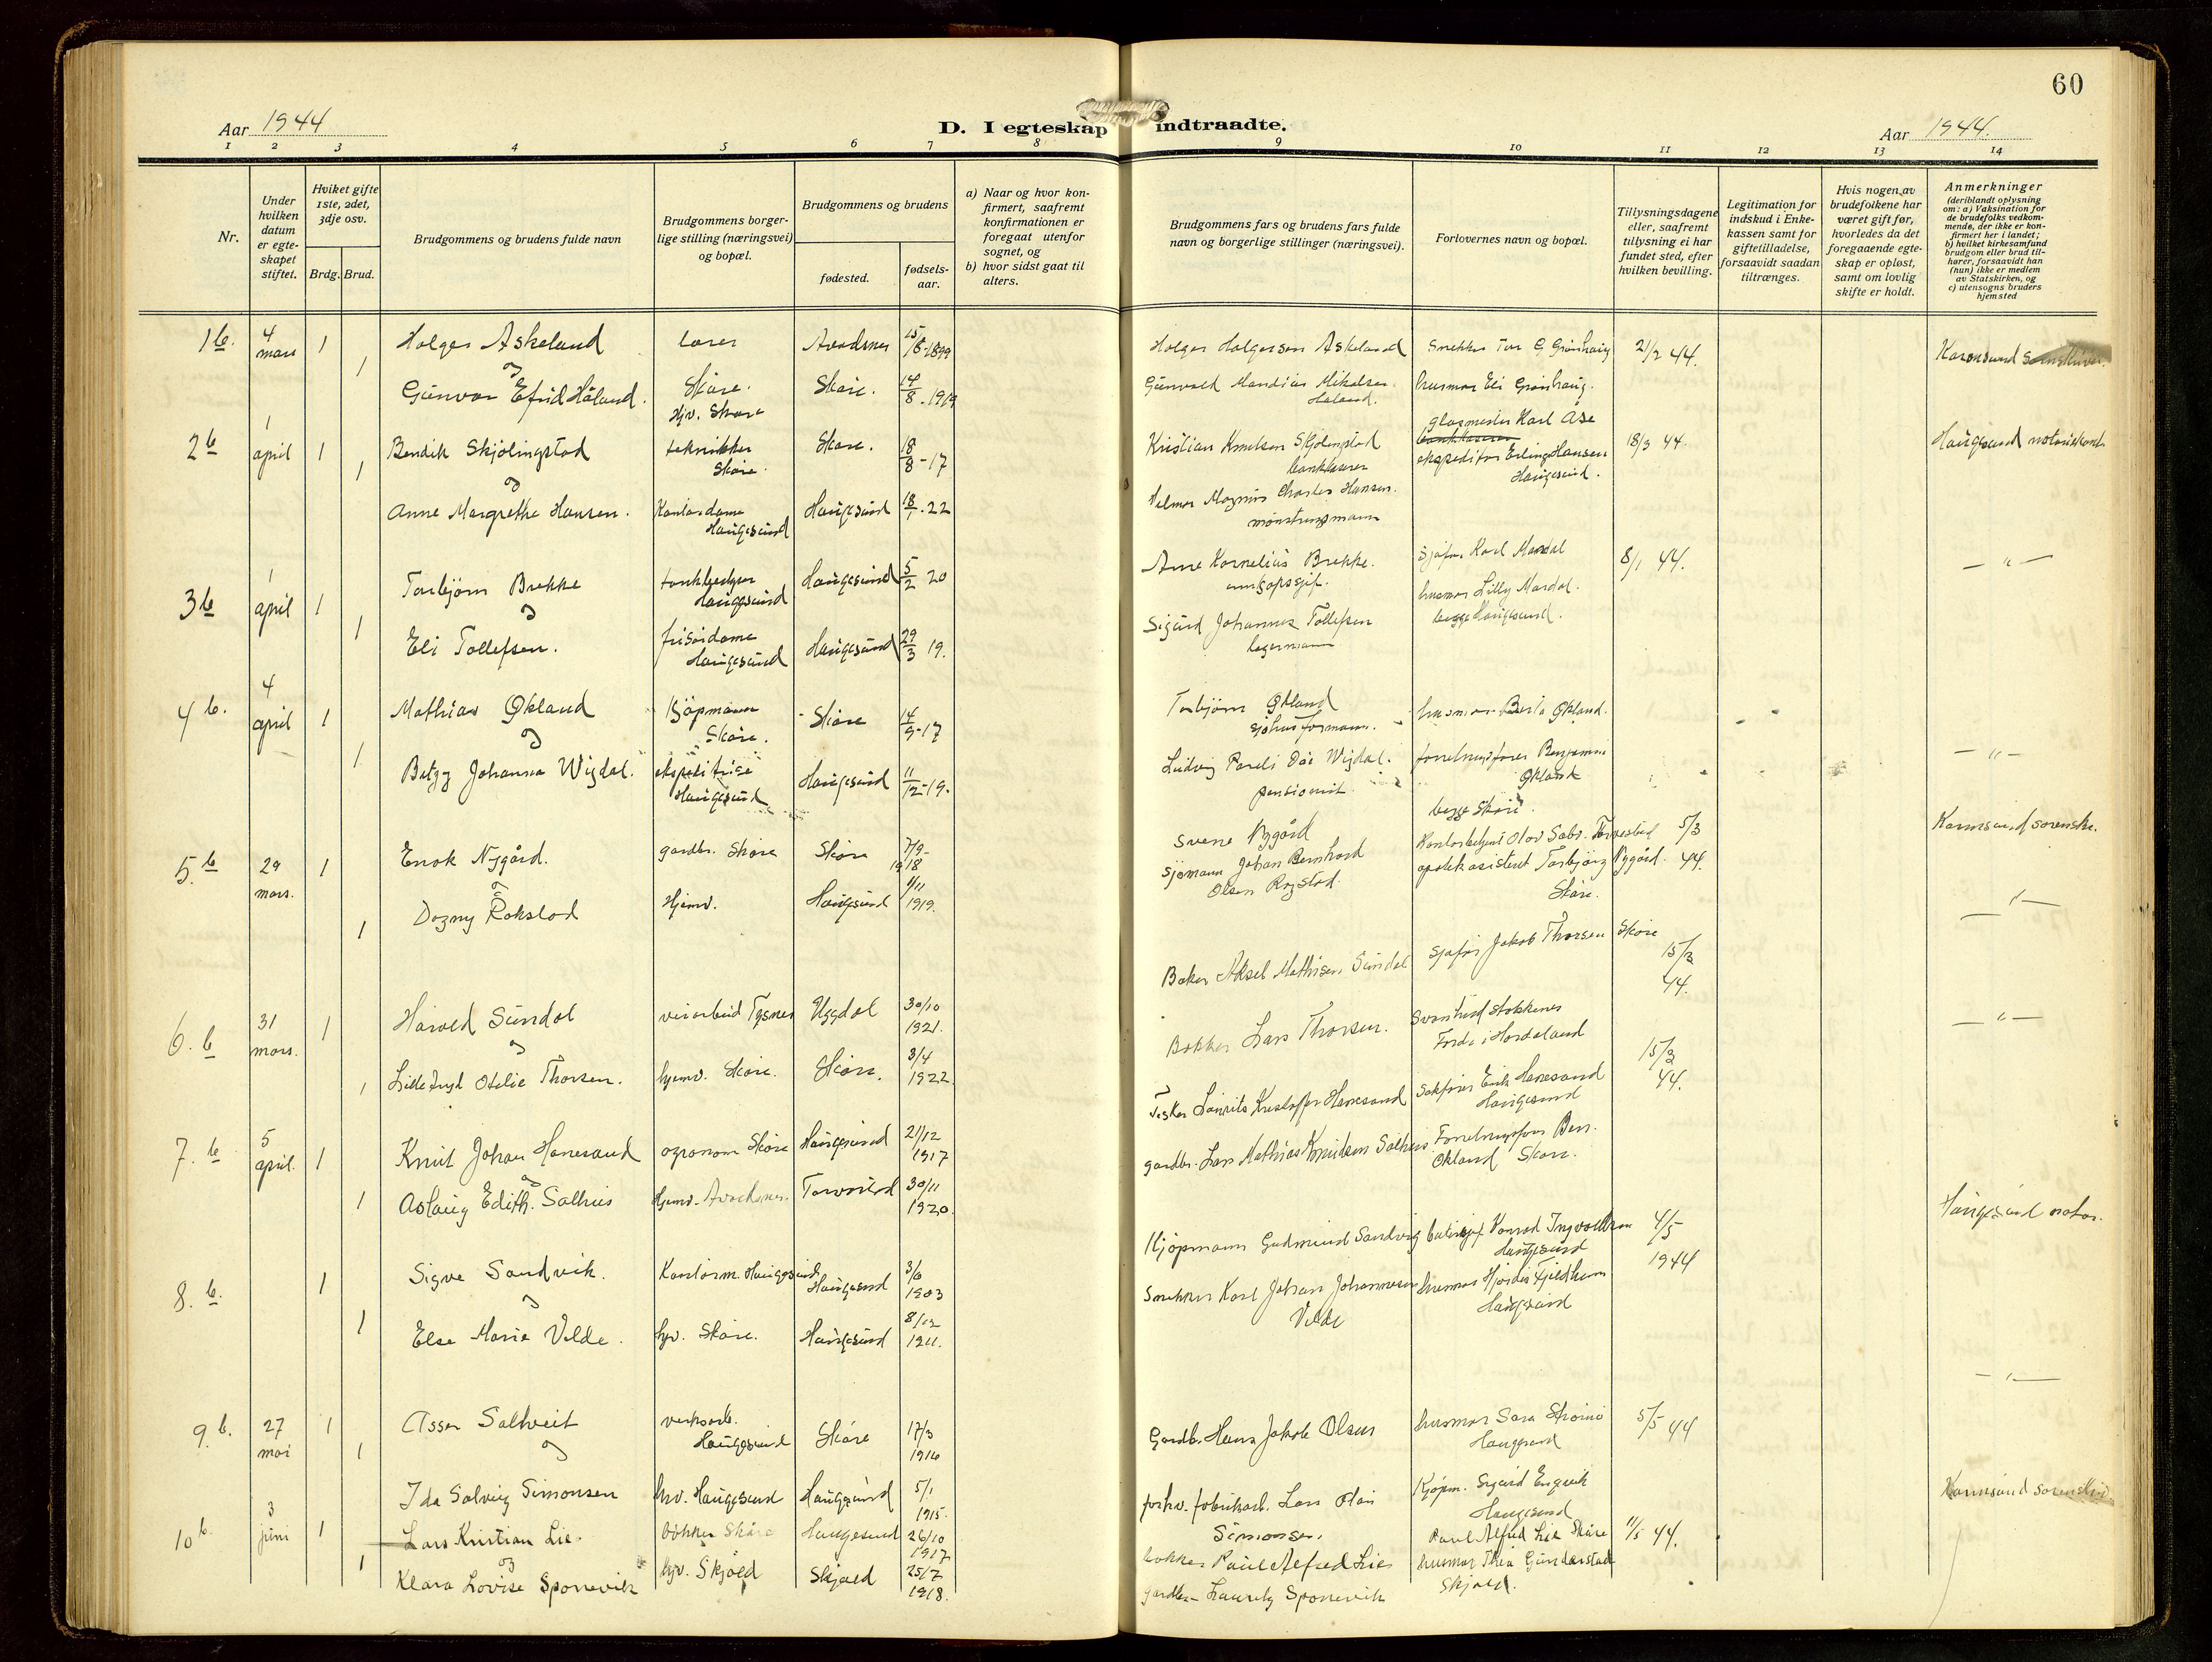 60
Aar 1944
D. I egteskap indtraadte.
Aar 1944.
1 2 3 4 5 6 7 8 9 10 11 12 13 14
Nr.
Under hvilken datum er egteskapet stiftet.
Hviket gifte 1ste, 2det, 3dje osv.
Brdg. Brud.
Brudgommens og brudens fulde navn
Brudgommens borgerlige stilling (næringsvei) og bopæl.
Brudgommens og brudens
fødested.
fødsels-aar.
a) Naar og hvor konfirmert, saafremt konfirmationen er foregaat utenfor sognet, og
b) hvor sidst gaat til alters.
Brudgommens fars og brudens fars fulde navn og borgerlige stillinger (næringsvei).
Forlovernes navn og bopæl.
Tillysningsdagene eller, saafremt tillysning ei har fundet sted, efter hvilken bevilling.
Legitimation for indskud i Enkekassen samt for giftetilladelse, forsaavidt saadan tiltrænges.
Hvis nogen av brudefolkene har været gift før, hvorledes da det foregaaende egteskap er opløst, samt om lovlig skifte er holdt.
Anmerkninger
(deriblandt oplysning om: a) Vaksination for de brudefolks vedkommende, der ikke er konfirmert her i landet;
b) hvilket kirkesamfund brudgom eller brud tilhører, forsaavidt han (hun) ikke er medlem av Statskirken, og
c) utensogns bruders hjemsted
1 b. 4 mars 1 Holger Askeland lærer Avadsnes 15/8-1899 Holger Holgersen Askeland Snekker Tor G Grønhaug 21/2 44.
og
1 Gunvor Efrid Håland. Skåre. Hjv. Skåre Skåre. 14/8-1919 Gunvald Mandius Mikalsen Håland. husmor Eli Grønhaug.
2 b 1 april 1 Bendik Skjølingstad tekniker Skåre. Skåre. 18/8-17 Kristian Knutsen Skjølingstad bankkaserer glasmester Karl Åse 18/3 44.
ekspeditør Erling Hansen Haugesund.
og
1 Anne Margrethe Hansen. Kontordame Haugesund Haugesund 18/1-22 Hilmar Magnus Charles Hansen. mønstringsmann
3 b 1 april 1 Torbjørn Brekke Haugesund Haugesund 5/2 20 Arne Kornelius Brekke. Sjåfør Karl Mardal 8/1 44. — " —
og
1 Eli Tollefsen. frisørdame Haugesund Haugesund 29/3 19. Sigurd Johannes Tollefsen lagermann husmor Lilly Mardal. begge Haugesund.
4 b. 4 april 1 Mathias Økland Kjøpmann Skåre. Skåre 14/9-17 Torbjørn Økland sjøhusformann. husmor Berta Økland.
og
1 Betzy Johanna Wigdal. ekspeditrise Haugesund Haugesund 11/12-19. Ludvig Wigdal. pensionist forretningsfører Benjamin Økland begge Skåre — " —
5. b 29 mars. 1 Enok Nygård. gardbr. Skåre Skåre 7/9-1918 Svene Nygård Torvestad 5/3 44.
og
1 Dagny Rokstad Hjemv. Haugesund 1/11 1919. Sjømann Johan Bernhard Olsen Rogstad. Torbjørg Nygård. Skåre. — " —
6. b 31 mars. 1 Harald Sundal Tysnes Uggdal 30/10 1921. Baker Aksel Mathisen Sundal sjåfør Jakob Thorsen Skåre 15/3 44.
og
1 Otelie Thorsen. hjemv. Skåre. Skåre. 3/4 1922 Bøkker Lars Thorsen. Stokkenes — " —
7. b 5 april. 1 Knut Johan Hanesand agronom Skåre Haugesund 21/12 1917 Lauritz Kristoffer Hanesand sakfører Erik Hanesand Haugesund 15/3 44.
og
1 Aslaug Edith. Salhus Hjemv. Avadsnes. Torvastad 30/11 1920. gardbr. Lars Mathias Knudsen Salhus Forretningsfører Ben. Økland Skåre.
8. b. 1 Sigve Sandvik. Kontorm. Haugesund Haugesund 3/6 1903 Kjøpmann Gudmund Sandvig Konrad Ingvaldsen Haugesund 4/5 1944
og
1 Else Marie Velde. hjv. Skåre. Haugesund 8/12 1911. Snekker Karl Johan Johannesen Velde husmor Hjørdis Fjeldheim Haugesund
9. b. 27 mai 1 Asser Saltveit Haugesund Skåre 17/3 1916 Gardb. Hans Jakob Olsen husmor Sara Haugesund 5/5 44 — " —
og
1 Ida Solveig Simonsen hv. Haugesund Haugesund 5/1 1915. Lars Olai Simonsen. Kjøpm. Sigurd Haugesund
10 b. 3 juni 1 Lars Kristian Lie. bøkker Skåre Haugesund 26/10 1917 bøkker Paul Alfred Lie Paul Alfred Lie Skåre 11/5 44.
og
1 Klara Lovise Sponevik hjv. Skjold Skjold 25/7 1918. gardbr. Lauritz Sponevik husmor Thea Gunderstad Skjold.